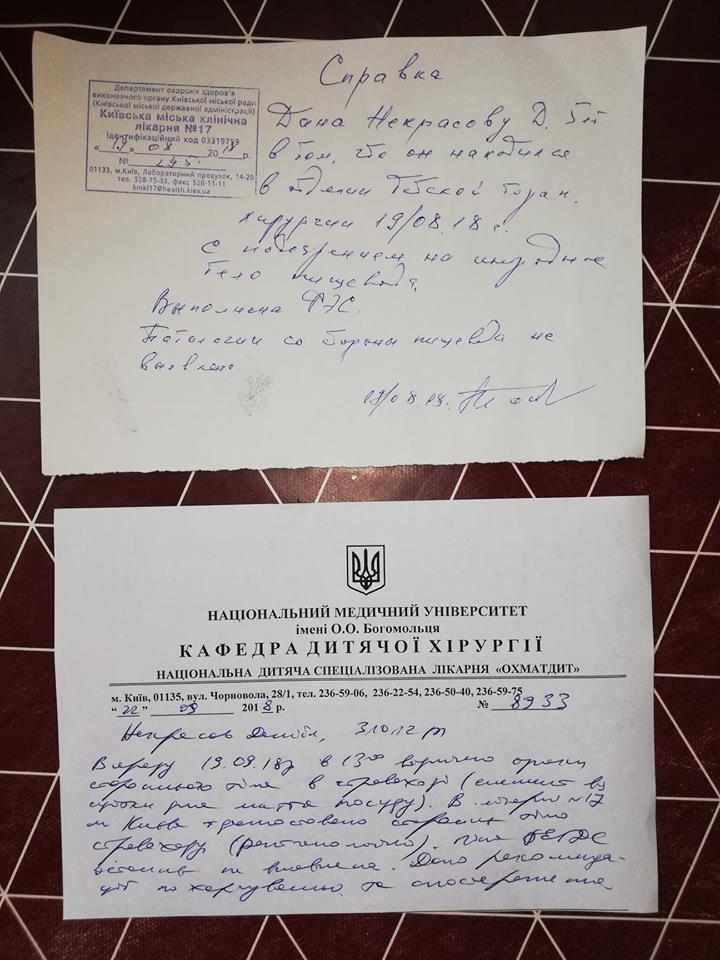 Справка
Департамент охорони здоров'я
виконавчого органу Київської міської ради
(Київської міської державної адміністрації)
Київська міська клінічна
лікарня №17
Ідентифікаційний код 03319759
«19» 08 2018 р.
№ 295
01133, м.Київ, Лабораторний провулок, 14-20
тел. 528-75-33, факс 528-11-11
kmkl17@health.kiev.ua
Дана Некрасову Д. 5
в том, что он находился
в отделении
хирургии 19/08.18 г.
с подозрением на инородное
тело пищевода.
Выполнена ФЭС.
Патологии со стороны пищевода не
выявлено.
19/08.18.
НАЦІОНАЛЬНИЙ МЕДИЧНИЙ УНІВЕРСИТЕТ
імені О.О. Богомольця
КАФЕДРА ДИТЯЧОЇ ХІРУРГІЇ
НАЦІОНАЛЬНА ДИТЯЧА СПЕЦІАЛІЗОВАНА ЛІКАРНЯ «ОХМАТДИТ»
м. Київ, 01135, вул. Чорновола, 28/1, тел. 236-59-06, 236-22-54, 236-50-40, 236-59-75
"22" 09 2018 р. № 8933
Некрасов
19.09.18р в 13⁰⁰
тіло в стравоході
для миття посуду). В лікарні №17
м Києва
стравоходу (рентгенологічно). ФЕГДС
не виявлена. Дано рекоменда-
ції по харчуванню та спостереження